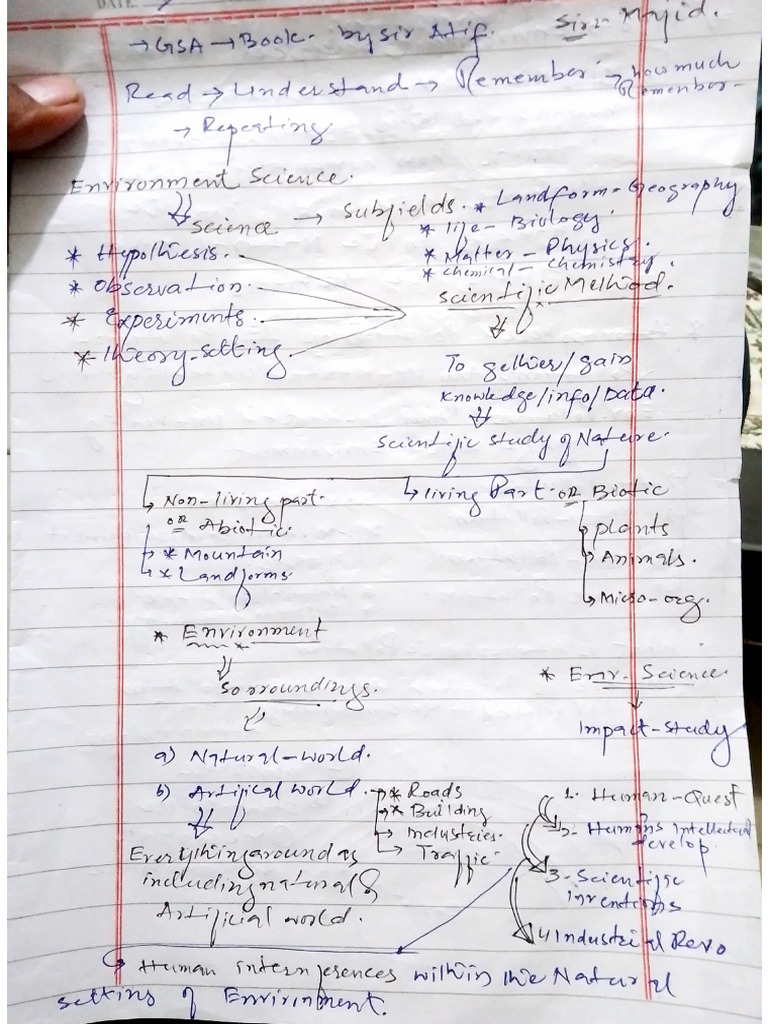 DATE:
→ GSA → Book. by sir Atif. Sir: Majid.
Read → Understand → Remember → how much Remember -
→ Repeating
Environment Science.
Science → Subfields. * Landform - Geography
* life - Biology.
* Matter - Physics.
* chemical - chemistry.
* Hypothesis.
* Observation.
* Experiments.
* theory-setting.
Scientific Method.
To gether/gain
knowledge/info/Data.
Scientific study of Nature.
Non-living part. or Abiotic.
* Mountain
* Landforms.
living Part or Biotic
plants
Animals.
Micro-org.
* Environment
Sorroundings.
a) Natural-world.
b) Artifical world. → * Roads
* Building
Industries.
Traffic.
Everything around us
including natural &
Artificial world.
* Env. Science
Impact-study
1. Human-Quest
2- Humans intellectual
develop.
3-Scientific
inventions
4 Industrial Revo
Human internferences within the Natural
setting of Envirinment.